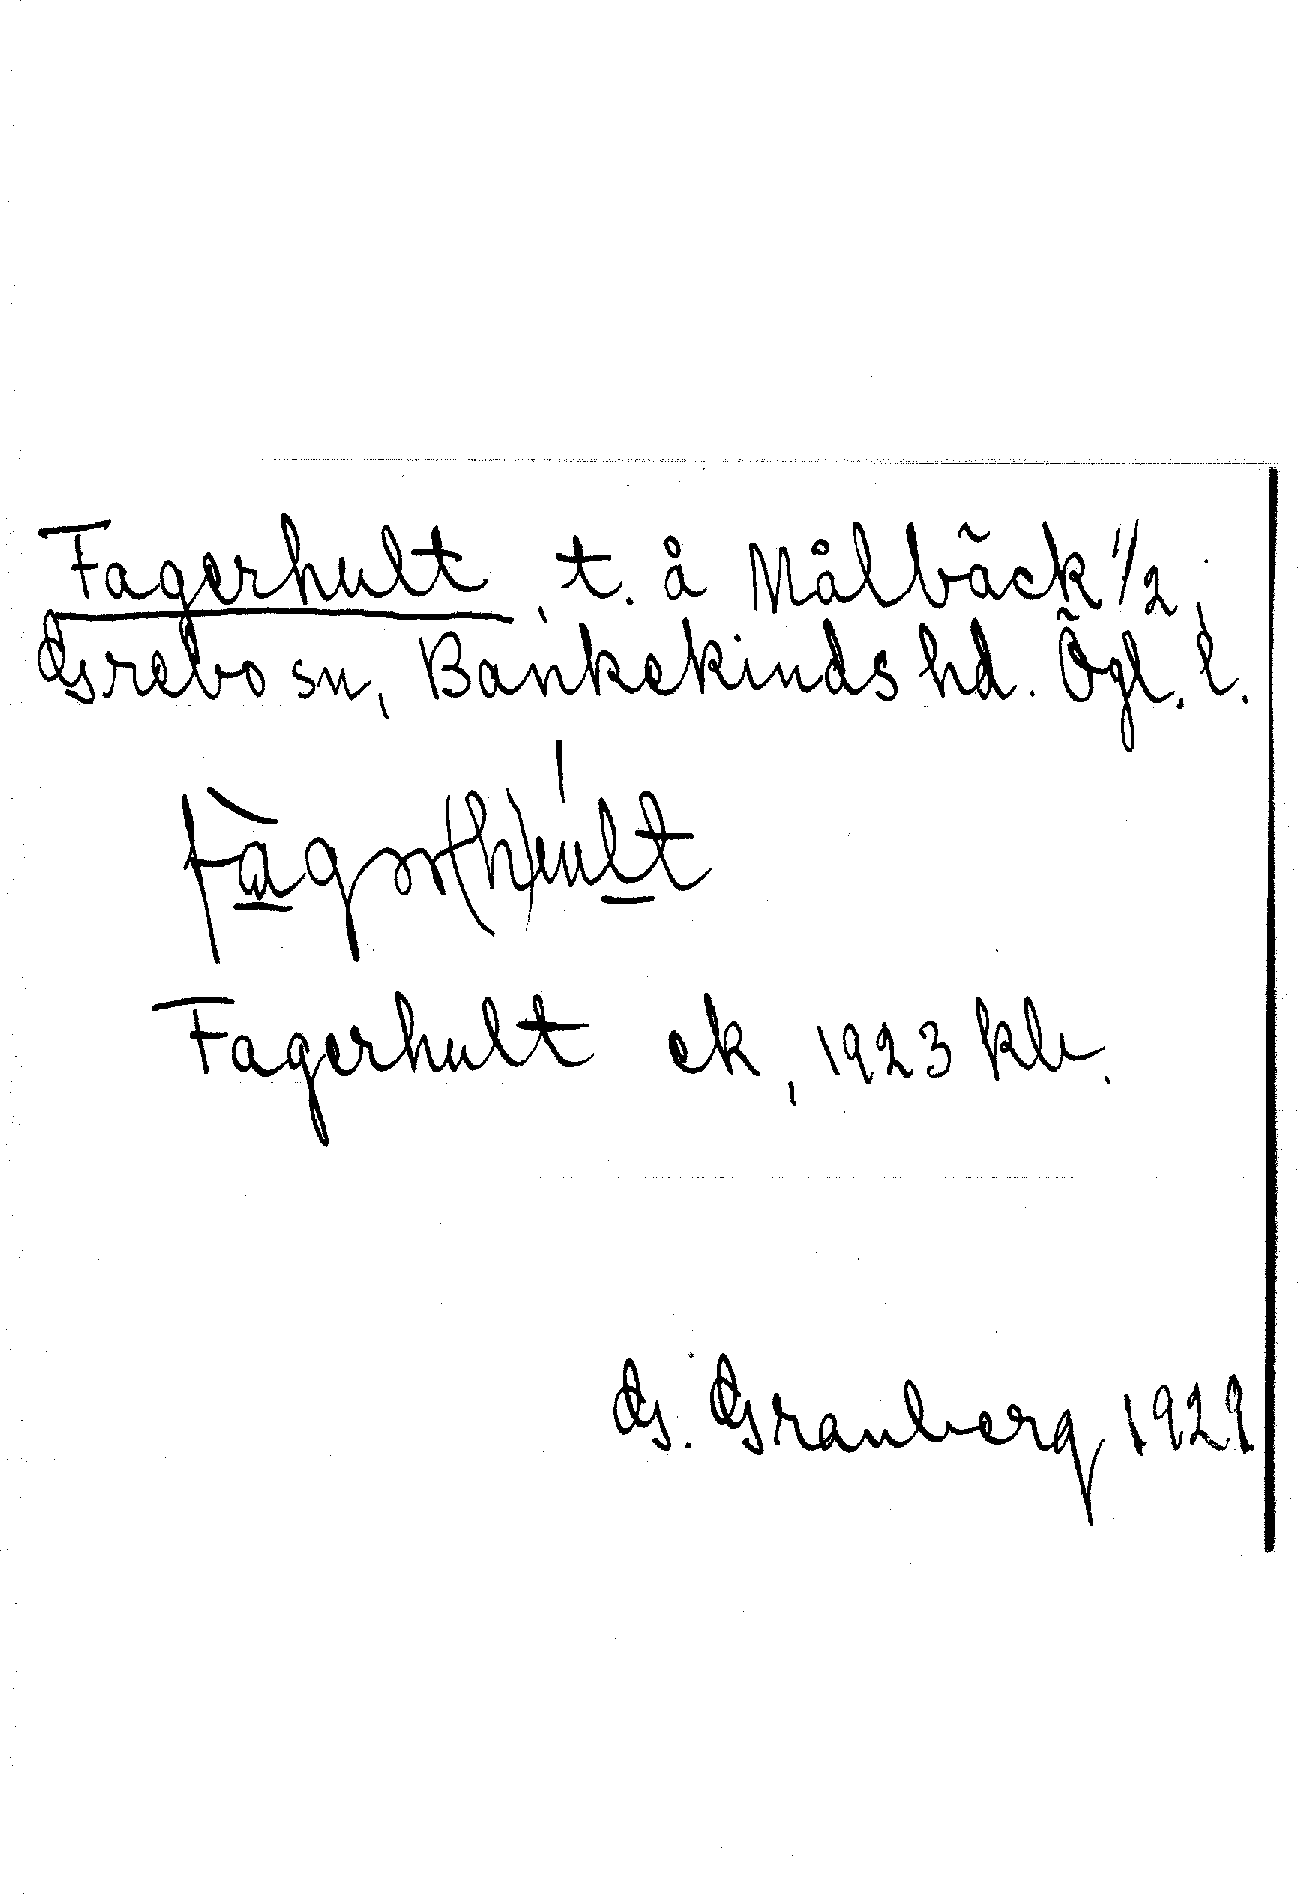 Fagerhult, t. å Målbäck 1/2,
Grebo sn, Bankekinds hd. Ögl. l.
Fagerhult ek, 1923 kb.
G. Granberg 1929